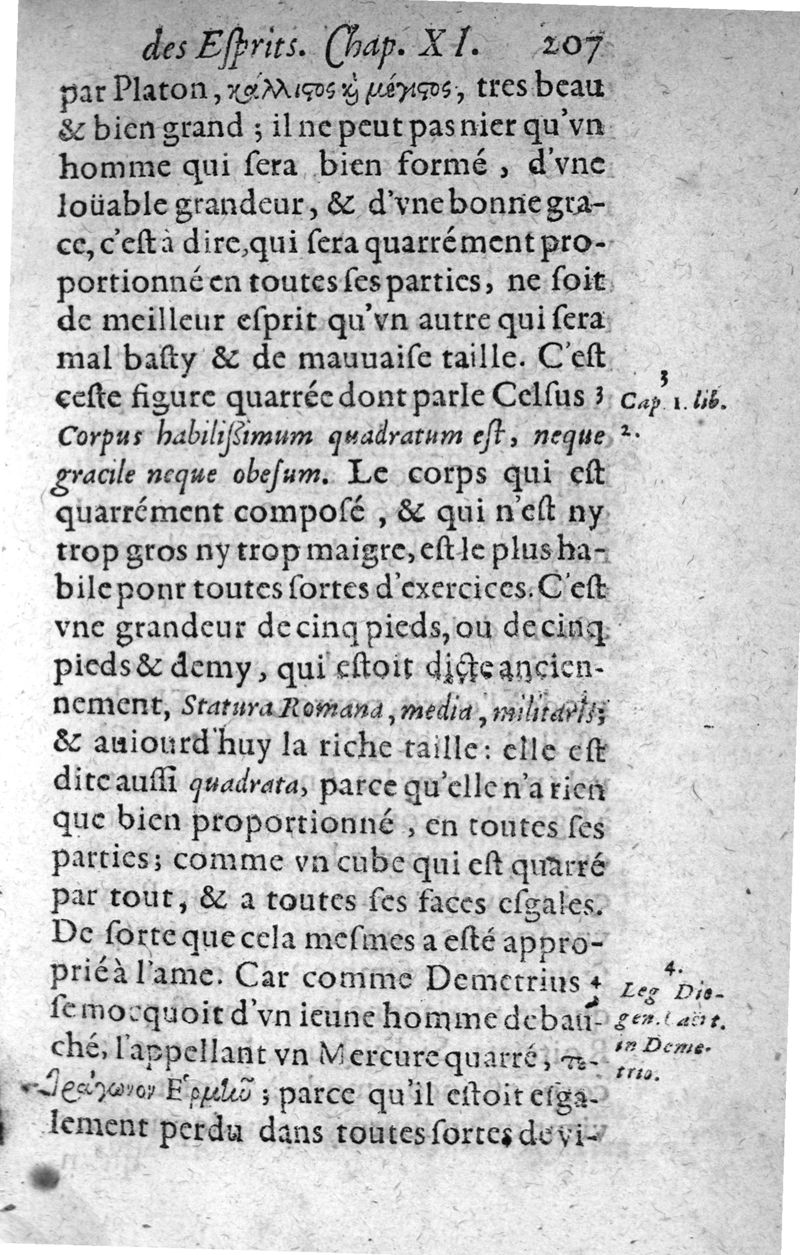 des Eſprits. Chap. XI. 207
par Platon, κάλλιϛος ϗ μέγιϛος, tres beau
& bien grand ; il ne peut pas nier qu'vn
homme qui ſera bien formé , d'vne
loüable grandeur, & d'vne bonne gra-
ce, c'eſt à dire, qui ſera quarrément pro-
portionné en toutes ſes parties, ne ſoit
de meilleur eſprit qu'vn autre qui ſera
mal baſty & de mauuaiſe taille. C'eſt
ceſte figure quarrée dont parle Celſus 3
3
Cap. 1. lib.
2.
Corpus habiliſſimum quadratum eſt, neque
gracile neque obeſum. Le corps qui eſt
quarrément compoſé , & qui n'eſt ny
trop gros ny trop maigre, eſt le plus ha-
bile ponr toutes ſortes d'exercices. C'eſt
vne grandeur de cinq pieds, ou de cinq
pieds & demy, qui eſtoit dicte ancien-
nement, Statura Romana, media, militaris;
& auiourd'huy la riche taille: elle eſt
dite auſſi quadrata, parce qu'elle n'a rien
que bien proportionné , en toutes ſes
parties; comme vn cube qui eſt quarré
par tout, & a toutes ſes faces eſgales.
De ſorte que cela meſmes a eſté appro-
prié à l'ame. Car comme Demetrius 4
ſe mocquoit d'vn ieune homme debau-
ché, l'appellant vn Mercure quarré, τε-
τράγωνον Ἑρμῆν ; parce qu'il eſtoit eſga-
lement perdu dans toutes ſortes de vi-
4.
Leg Dio-
gen. Laërt.
in Deme-
trio.